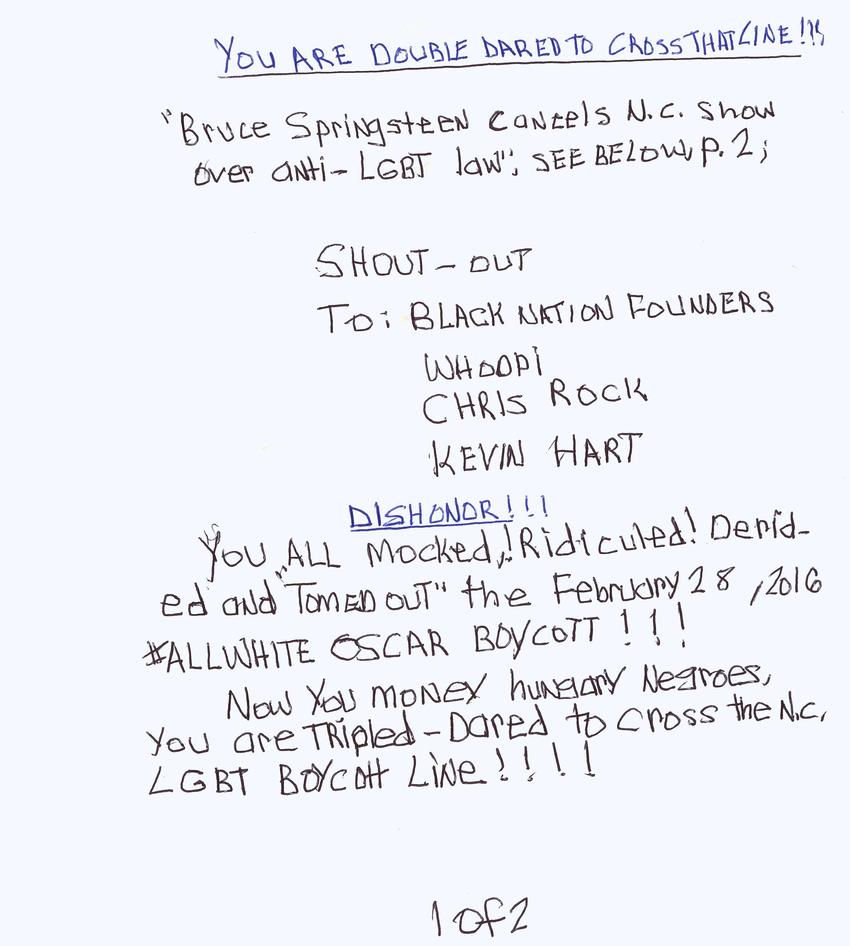 YOU ARE DOUBLE DARED TO CROSS THAT LINE!!!
"Bruce Springsteen cancels N.C. show
over anti-LGBT law"; SEE BELOW, p. 2;
SHOUT-OUT
To: BLACK NATION FOUNDERS
WHOOPi
CHRIS ROCK
KEVIN HART
DISHONOR!!!
You ALL Mocked,! Ridiculed! Derid-
ed and "TOMED OUT" the February 28, 2016
#ALLWHITE OSCAR BOYCOTT!!!
Now You MONEY hungary Negroes,
You are TRipled-Dared to Cross the N.C.
LGBT BOYCott LiNe!!!!
1 of 2